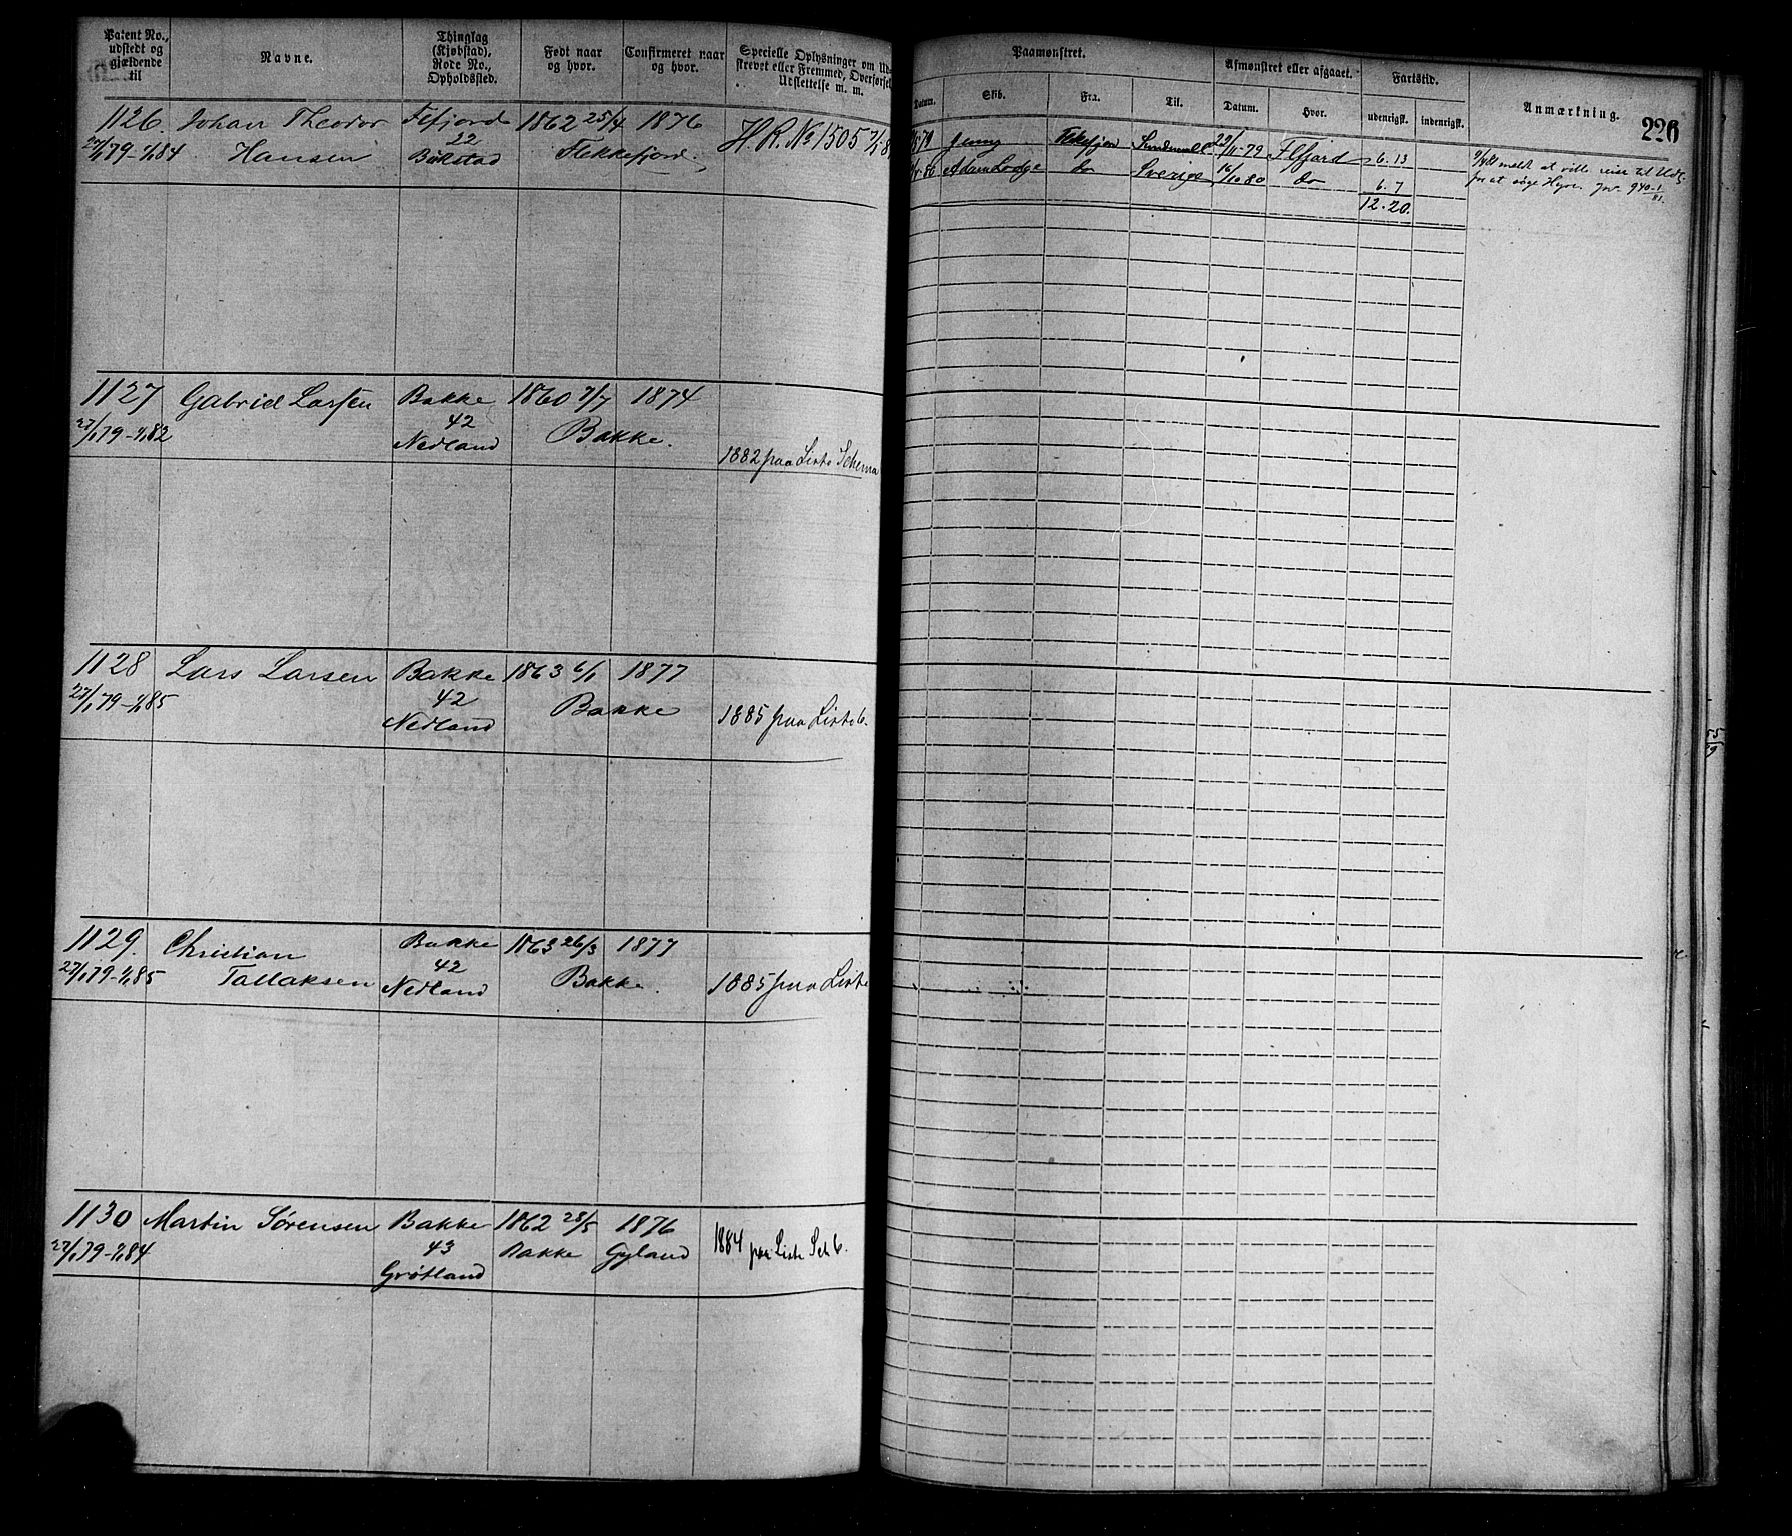 Patent No., udstedt og gjældende til
Navne.
Thinglag (Kjøbstad), Rode No., Opholdssted.
Født naar og hvor.
Confirmeret naar og hvor.
Specielle Oplysninger om Ud-
skrevet eller Fremmed, Overførsel
Udslettelse m. m.
Paamønstret.
Afmønstret eller afgaaet.
Fartstid.
Anmærkning.
226
Datum.
Skib.
Fra.
Til.
Datum.
Hvor.
udenrigsk.
indenrigsk.
1126. Johan Theodor Fefjord 1862 25/4 1876 H.R. No 1505
27/1 79-1/1 84 Hansen 22 Flekkefjord.
Bøkstad
Jenny Flekkefjord 22/11-79 Flfjord 6.13
Adam Lodge do Sverige 16/10 80 do 6.7
12.20.
1127 Gabriel Larsen Bakke 1860 7/7 1874
27/1 79-1/1 82 42 Bakke.
Nedland 1882 paa Liste Schema
1128 Lars Larsen Bakke 1863 6/1 1877
27/1 79-1/1 85 42 Bakke
Nedland 1885 paa Liste 6.
1129. Christian Bakke 1863 26/3 1877
27/1 79-1/1 85 Tallaksen 42 Bakke. 1885 paa Liste
Nedland
1130 Martin Sørensen Bakke 1862 28/5 1876
27/1 79-1/1 84 43 Bakke Gyland 1884 paa Liste Sch 6.
Grøtland